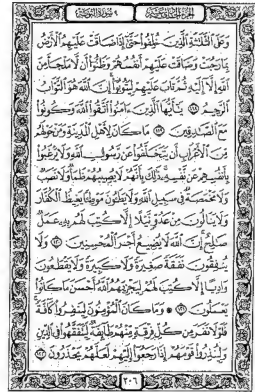 الجزء الحادي عشر ٩ سورة التوبة
وَعَلَى الثَّلَاثَةِ الَّذِينَ خُلِّفُوا حَتَّىٰ إِذَا ضَاقَتْ عَلَيْهِمُ الْأَرْضُ
بِمَا رَحُبَتْ وَضَاقَتْ عَلَيْهِمْ أَنفُسُهُمْ وَظَنُّوا أَن لَّا مَلْجَأَ مِنَ
اللَّهِ إِلَّا إِلَيْهِ ثُمَّ تَابَ عَلَيْهِمْ لِيَتُوبُوا إِنَّ اللَّهَ هُوَ التَّوَّابُ
الرَّحِيمُ ١١٨ يَا أَيُّهَا الَّذِينَ آمَنُوا اتَّقُوا اللَّهَ وَكُونُوا
مَعَ الصَّادِقِينَ ١١٩ مَا كَانَ لِأَهْلِ الْمَدِينَةِ وَمَنْ حَوْلَهُم
مِّنَ الْأَعْرَابِ أَن يَتَخَلَّفُوا عَن رَّسُولِ اللَّهِ وَلَا يَرْغَبُوا
بِأَنفُسِهِمْ عَن نَّفْسِهِ ذَٰلِكَ بِأَنَّهُمْ لَا يُصِيبُهُمْ ظَمَأٌ وَلَا نَصَبٌ
وَلَا مَخْمَصَةٌ فِي سَبِيلِ اللَّهِ وَلَا يَطَئُونَ مَوْطِئًا يَغِيظُ الْكُفَّارَ
وَلَا يَنَالُونَ مِنْ عَدُوٍّ نَّيْلًا إِلَّا كُتِبَ لَهُم بِهِ عَمَلٌ
صَالِحٌ إِنَّ اللَّهَ لَا يُضِيعُ أَجْرَ الْمُحْسِنِينَ ١٢٠ وَلَا
يُنفِقُونَ نَفَقَةً صَغِيرَةً وَلَا كَبِيرَةً وَلَا يَقْطَعُونَ
وَادِيًا إِلَّا كُتِبَ لَهُمْ لِيَجْزِيَهُمُ اللَّهُ أَحْسَنَ مَا كَانُوا
يَعْمَلُونَ ١٢١ وَمَا كَانَ الْمُؤْمِنُونَ لِيَنفِرُوا كَافَّةً
فَلَوْلَا نَفَرَ مِن كُلِّ فِرْقَةٍ مِّنْهُمْ طَائِفَةٌ لِّيَتَفَقَّهُوا فِي الدِّينِ
وَلِيُنذِرُوا قَوْمَهُمْ إِذَا رَجَعُوا إِلَيْهِمْ لَعَلَّهُمْ يَحْذَرُونَ ١٢٢
٢٠٦